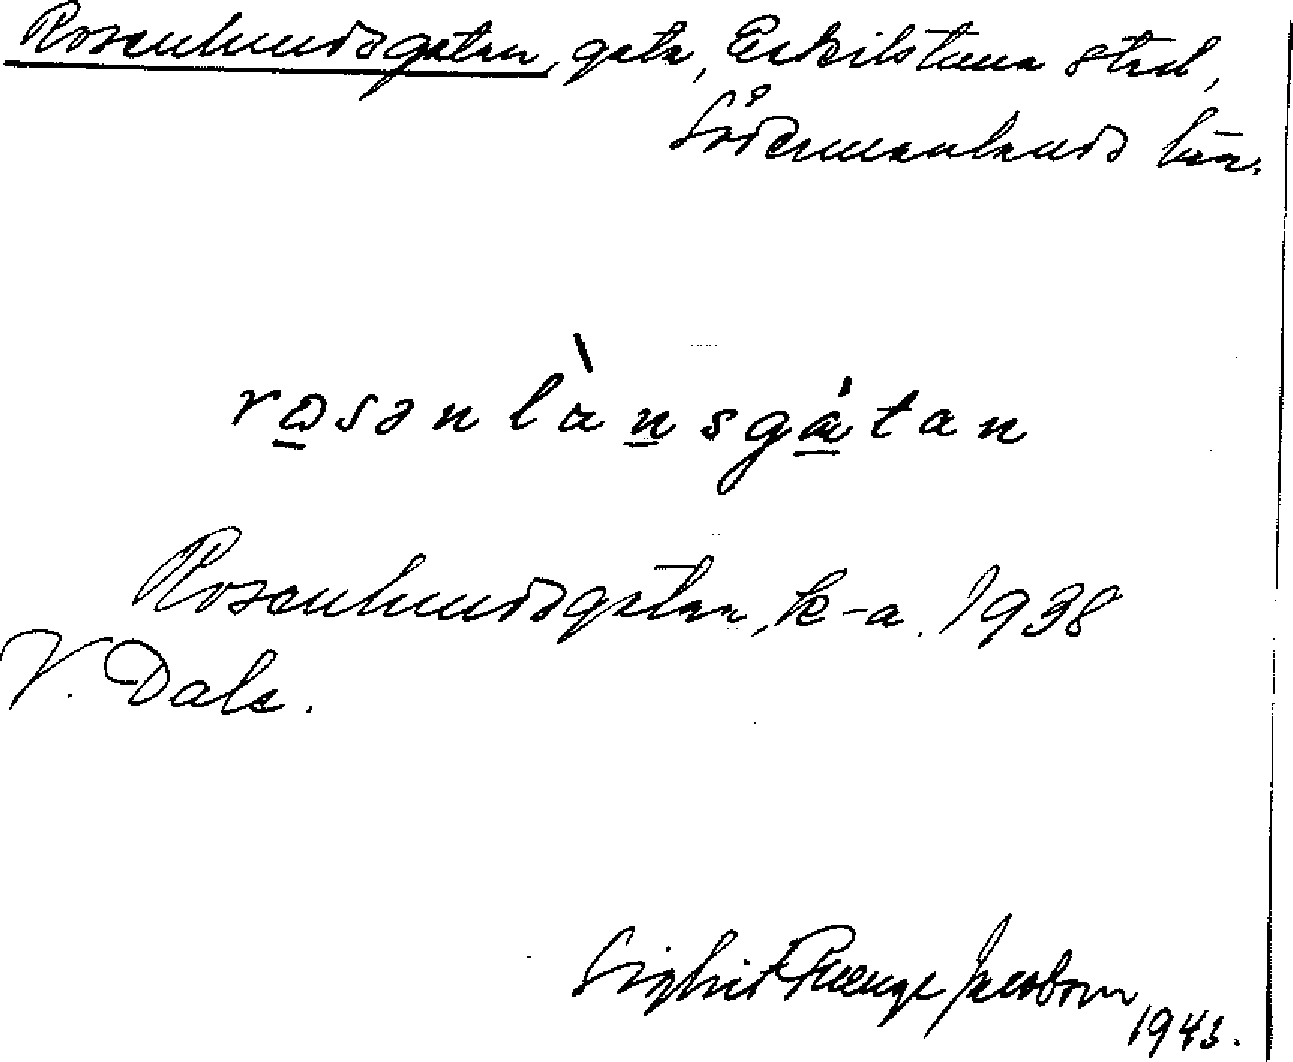 Rosenlundsgatan, gata, Eskilstuna stad,
Södermanlands län.
rosənlànsgátan
Rosenlundsgatan, k-a. 1938
V. Dala.
1943.